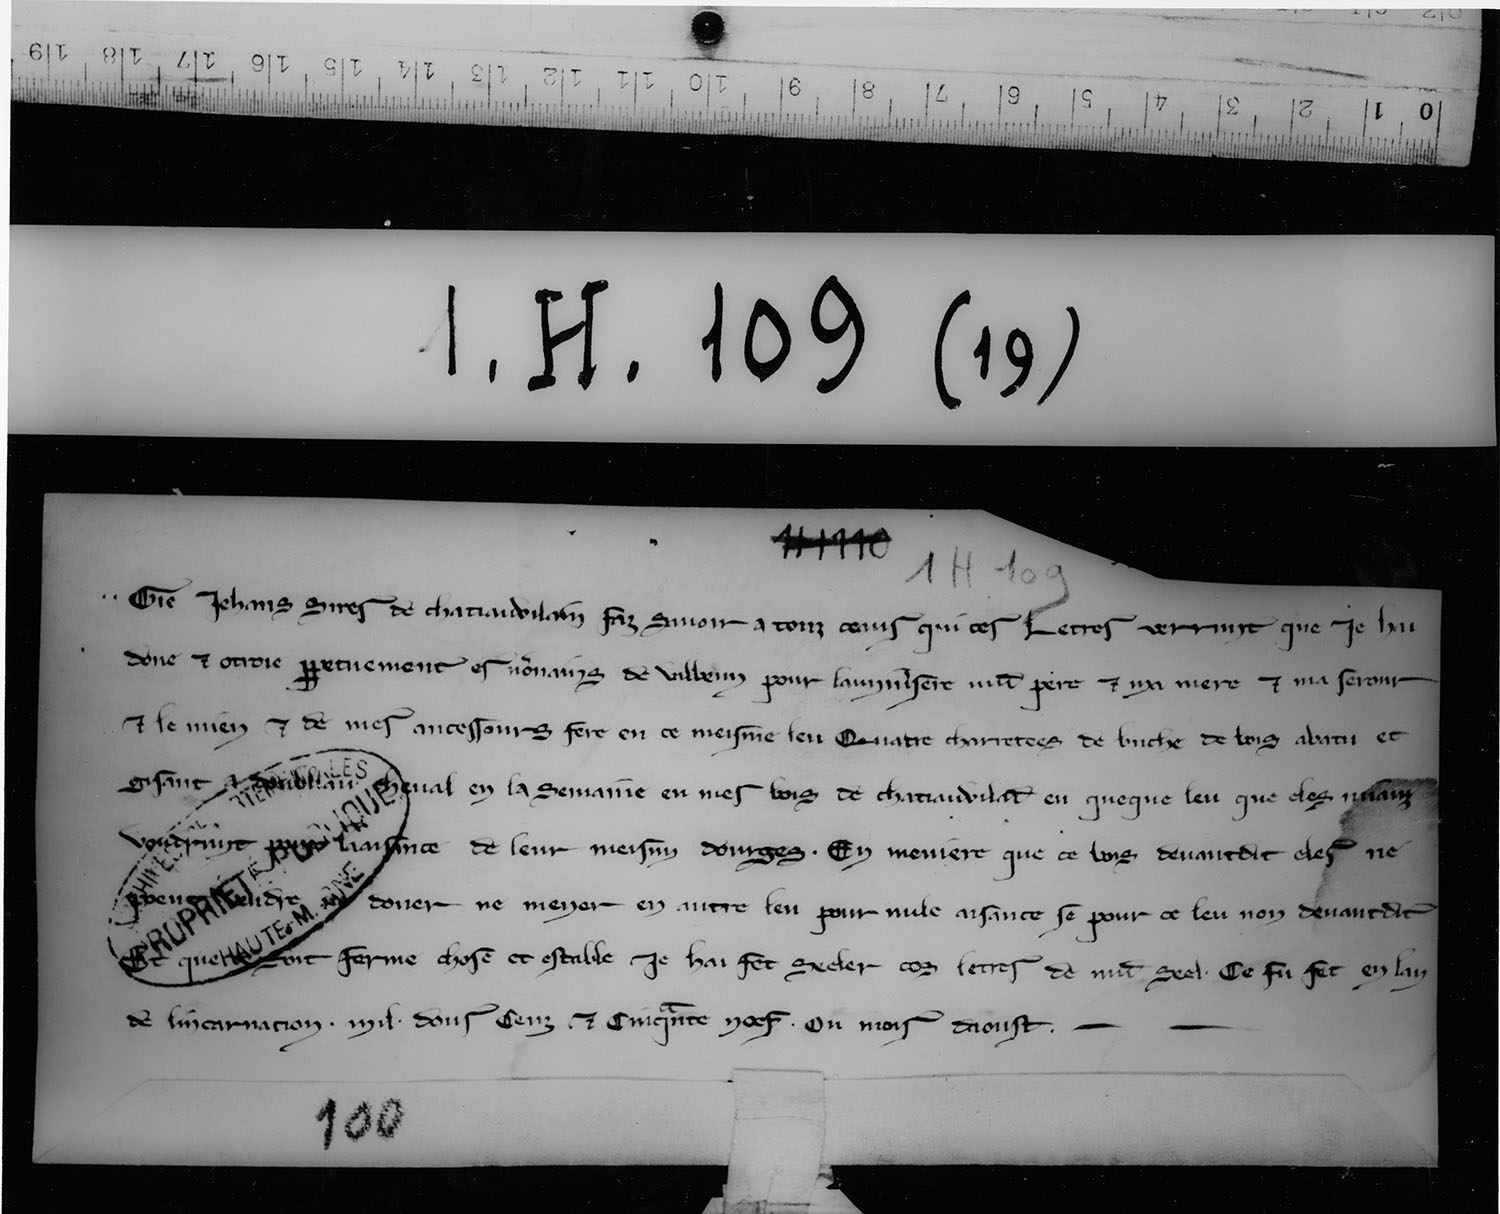 19 18 17 16 15 14 13 12 11 10 9 8 7 6 5 4 3 2 1 0
1. H. 109 (19)
H 1110
1 H 109
Gie Jehans Sires de chatiauvilain faz savoir a touz ceaus qui ces Lettres verrunt que Je hai
done & otroie ꝑpetuement es nonains de vilbeim pour laurmisere mon pere & ma mere & ma serour
& le mien & de mes ancessours fere en ce meisme leu Quatre charretees de buche de bois abatu et
gisant a cheval en la semainne en mes bois de chatiauvilain en queque leu que eles miauz
voudrunt pour laaisance de leur meison dourges. En meniere que ce bois devantdit eles ne
vendre ne doner ne mener en autre leu pour nule aisance se pour ce leu non devantdit
Et que soit ferme chose et estable Je hai fet seeler ces lettres de mon seel. Ce fu fet en lan
de lincarnacion. mil. dous Cenz & Cinquante noef. Ou mois daoust.
PROPRIÉTÉ PUBLIQUE
HAUTE-MARNE
100